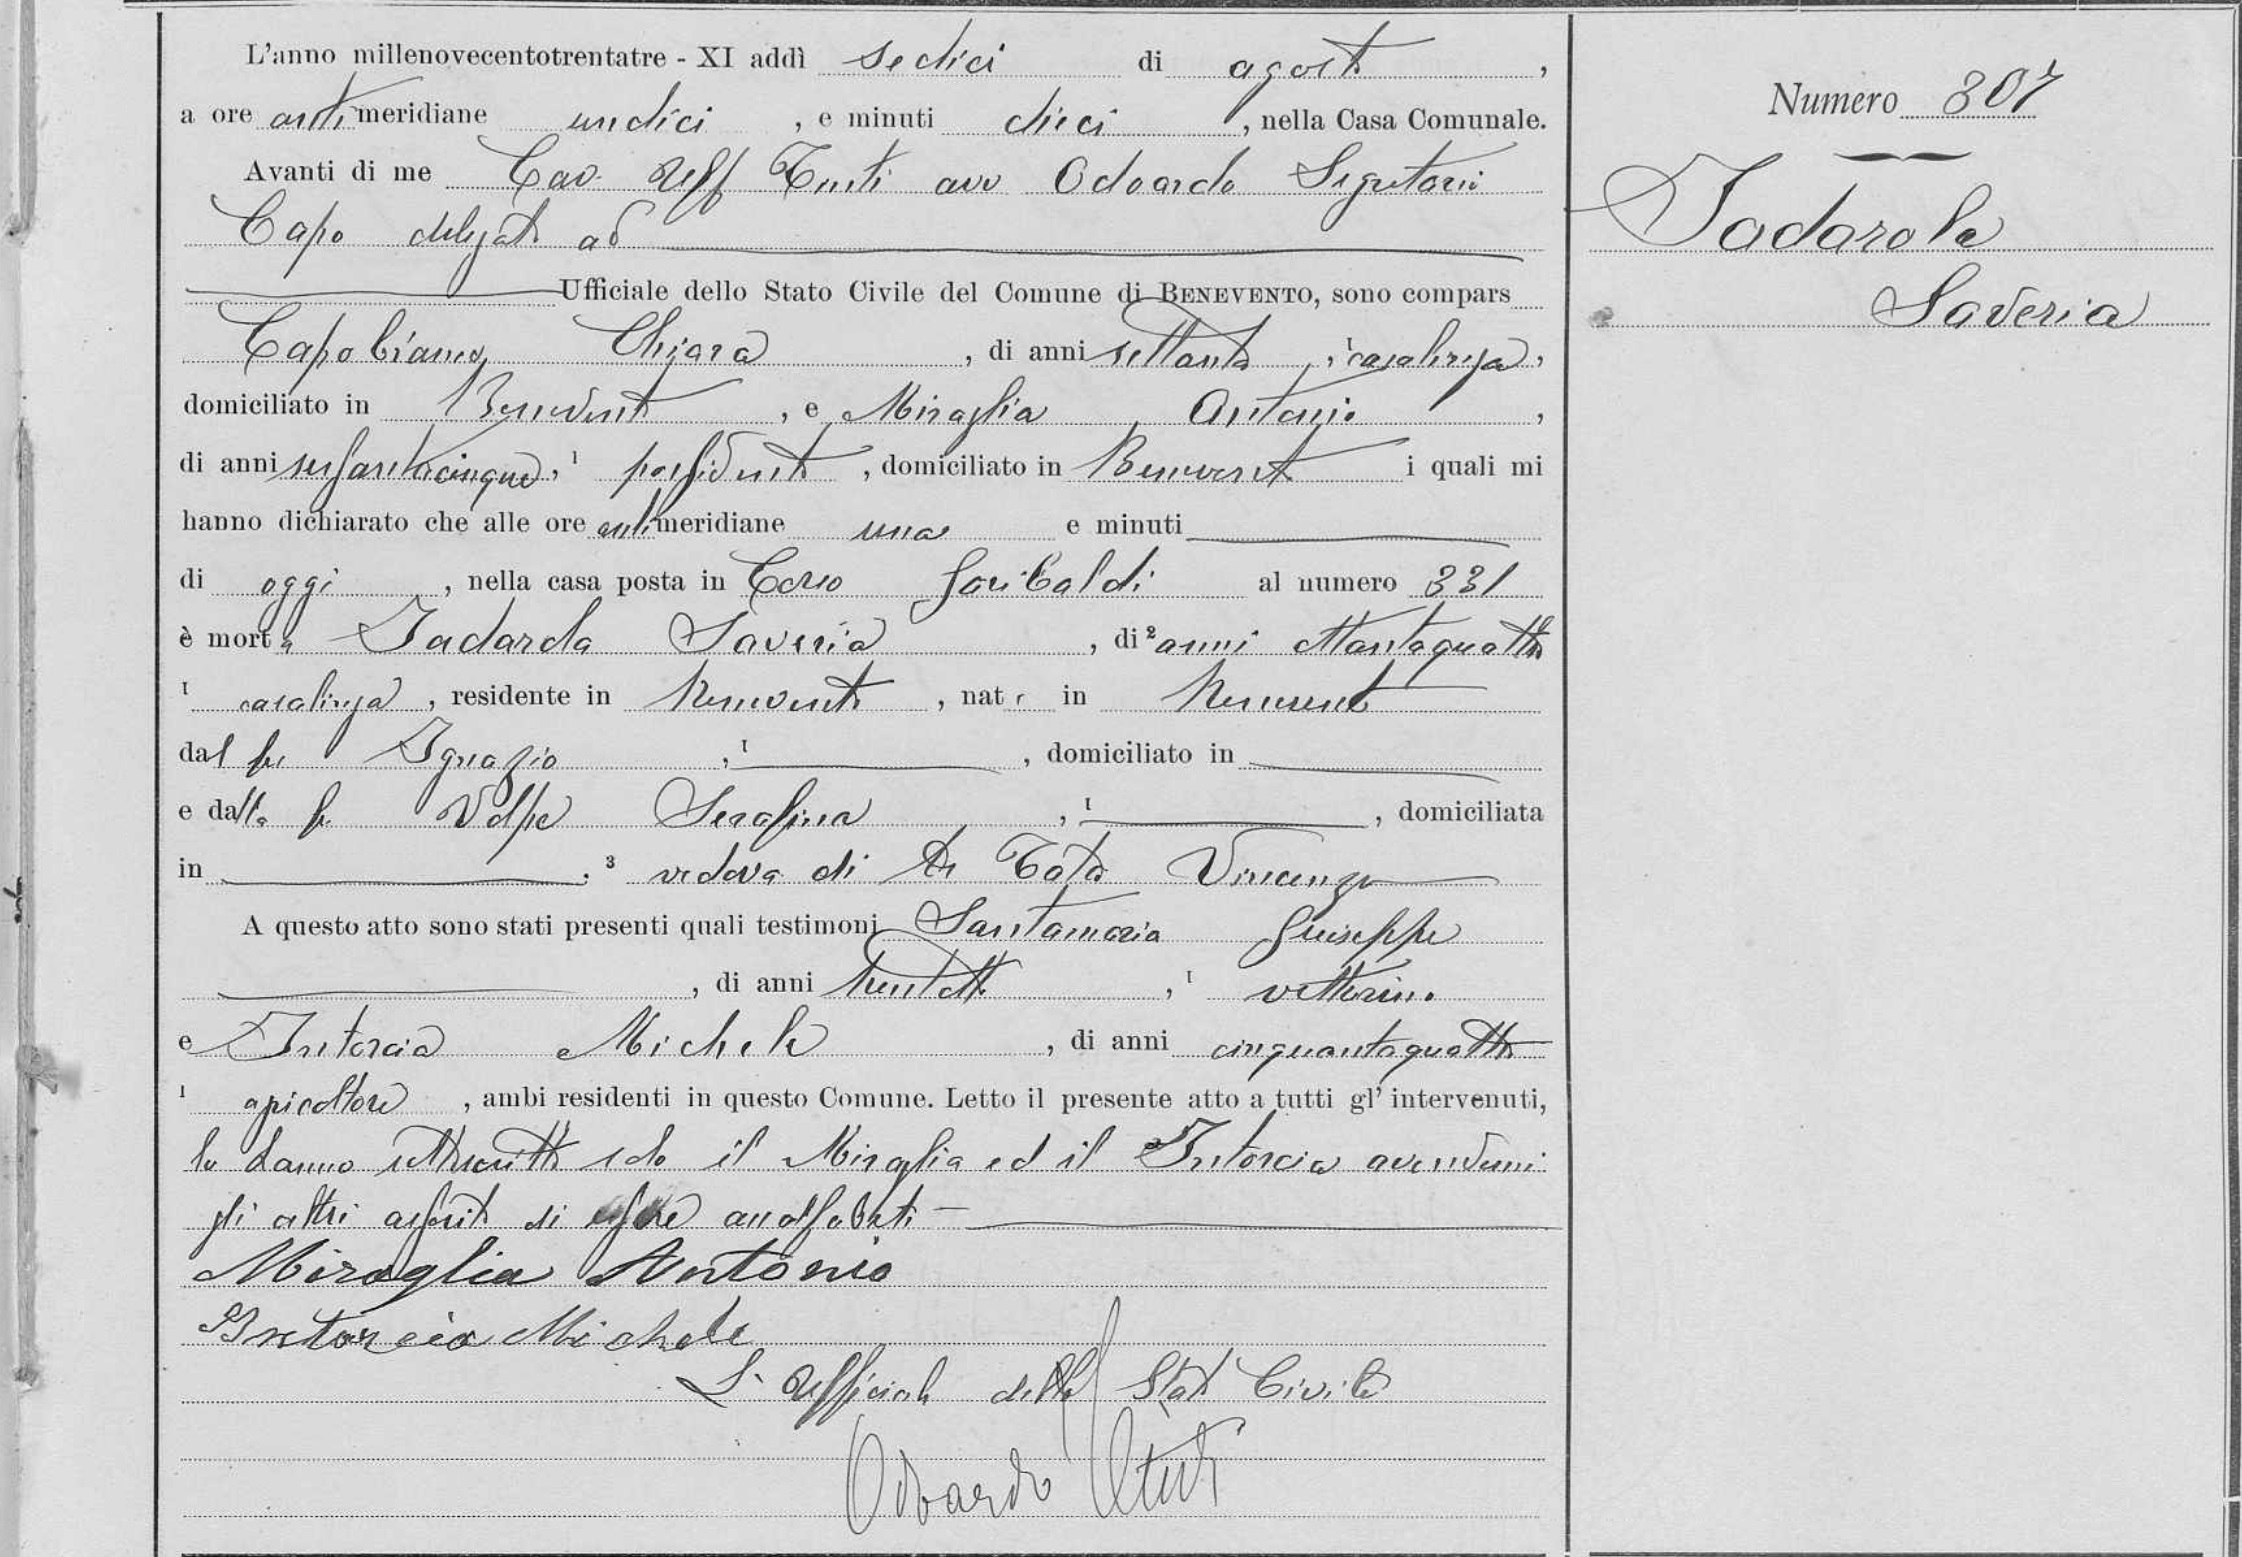 L'anno millenovecentotrentatre - XI addì sedici di agosto,
a ore antimeridiane undici, e minuti dieci, nella Casa Comunale.
Avanti di me Cav Uff avv Odoardo Segretario
Capo delegato ad
Ufficiale dello Stato Civile del Comune di BENEVENTO, sono compars
Capobianco Chiara, di anni settanta, ¹ casalinga,
domiciliato in Benevento, e Miraglia Antonio,
di anni sessantacinque, ¹ possidente, domiciliato in Benevento i quali mi
hanno dichiarato che alle ore antimeridiane una e minuti
di oggi, nella casa posta in Corso Garibaldi al numero 331
è morta Iadarola Saveria, di ² anni ottantaquattro
¹ casalinga, residente in Benevento, nata in Benevento
dal fu Ignazio, ¹, domiciliato in
e dalla fu Volpe Serafina, ¹, domiciliata
in . ³ vedova di De Toto Vincenzo
A questo atto sono stati presenti quali testimoni Santamaria Giuseppe
, di anni trentotto, ¹ vetturino
e Intorcia Michele, di anni cinquantaquattro
¹ apicoltore, ambi residenti in questo Comune. Letto il presente atto a tutti gl' intervenuti,
lo hanno sottoscritto solo il Miraglia ed il Intorcia avendomi
gli altri asserito di essere analfabeti
Miraglia Antonio
Intorcia Michele
L'Ufficiale dello Stato Civile
Odoardo
Numero 307
Iadarola
Saveria